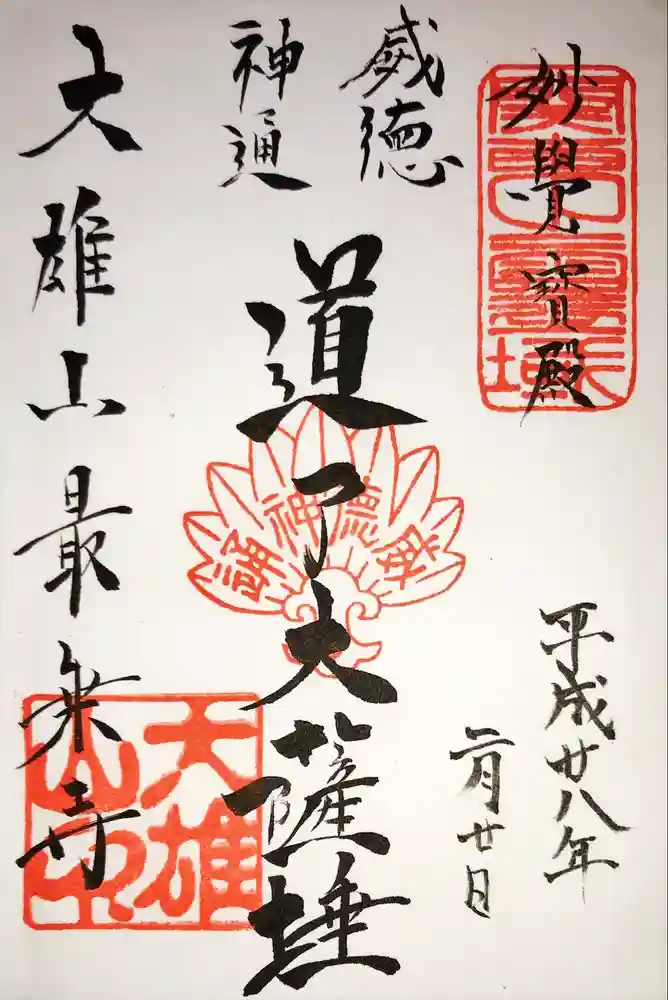 妙覺寶殿
威德
神通
道了大薩埵
平成廿八年
二月廿日
大雄山最乗寺
威德神通
大雄山印